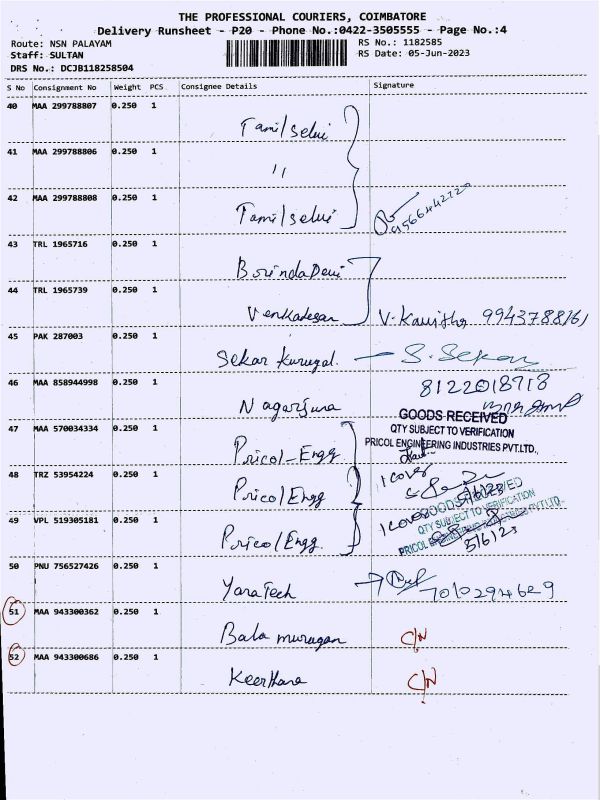 THE PROFESSIONAL COURIERS, COIMBATORE
Delivery Runsheet - P20 - Phone No.:0422-3505555 - Page No.:4
Route: NSN PALAYAM
RS No.: 1182585
Staff: SULTAN
RS Date: 05-Jun-2023
DRS No.: DCJB118258504
S No Consignment No Weight PCS Consignee Details Signature
40 MAA 299788807 0.250 1
Tamilselvi
41 MAA 299788806 0.250 1
"
42 MAA 299788808 0.250 1
Tamilselvi
43 TRL 1965716 0.250 1
Devi
44 TRL 1965739 0.250 1
Venkadesan V. Kavitha 9943788161
45 PAK 287003 0.250 1
Sekar Kurugal. S. Sekar
46 MAA 858944998 0.250 1 8122018718
Nagarjuna
GOODS RECEIVED
47 MAA 570034334 0.250 1 QTY SUBJECT TO VERIFICATION
PRICOL ENGINEERING INDUSTRIES PVT.LTD.,
Pricol-Engg
1 cover
48 TRZ 53954224 0.250 1
Pricol Engg 5/6/23
GOODS RECEIVED
49 VPL 519305181 0.250 1 1 cover QTY SUBJECT TO VERIFICATION
Pricol Engg PRICOL ENGINEERING PVT.LTD.
5/6/23
50 PNU 756527426 0.250 1
YaraTech
51 MAA 943300362 0.250 1
Bala murugan C/N
52 MAA 943300686 0.250 1
Keerthana C/N